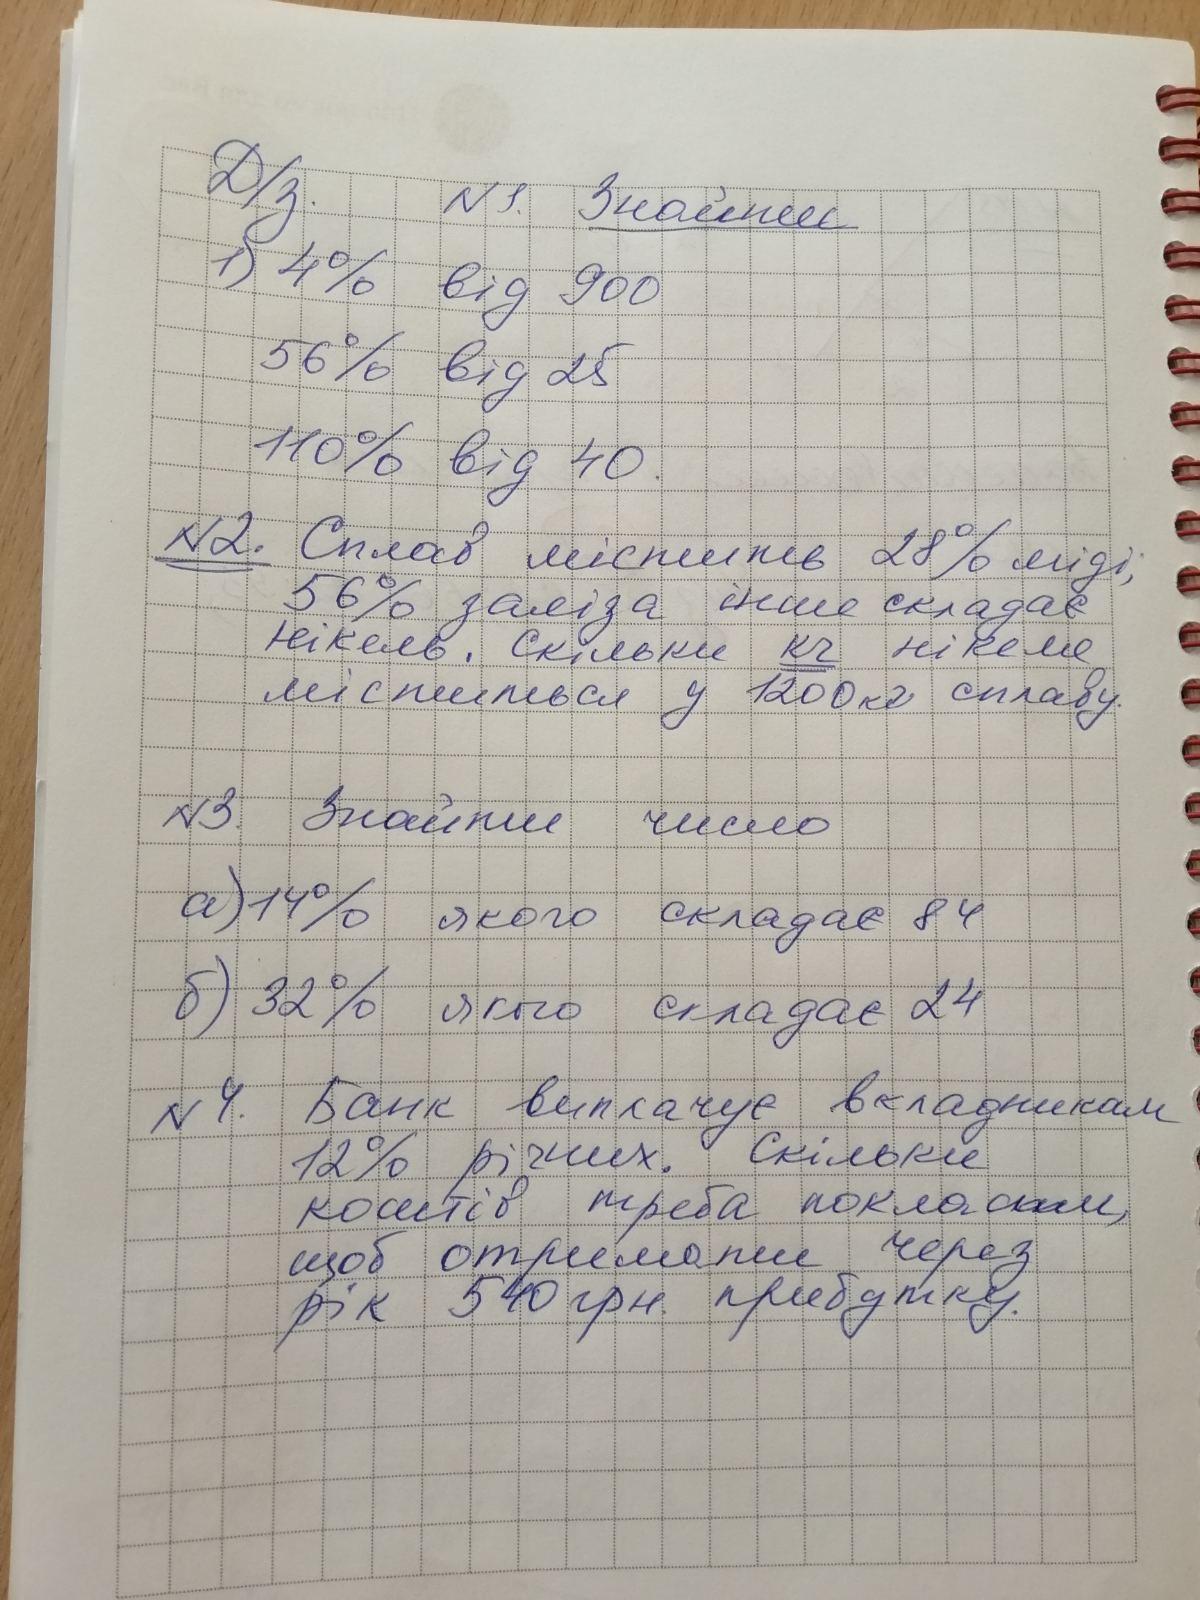 Д/з. №1. Знайти
1) 4% від 900
56% від 25
110% від 40.
№2. Сплав містить 28% міді,
56% заліза інше складає
нікель. Скільки кг нікелю
міститься у 1200кг сплаву.
№3. Знайти число
а) 14% якого складає 84
б) 32% якого складає 24
№4. Банк виплачує вкладникам
12% річних. Скільки
коштів треба покласти,
щоб отримати через
рік 540 грн. прибутку.